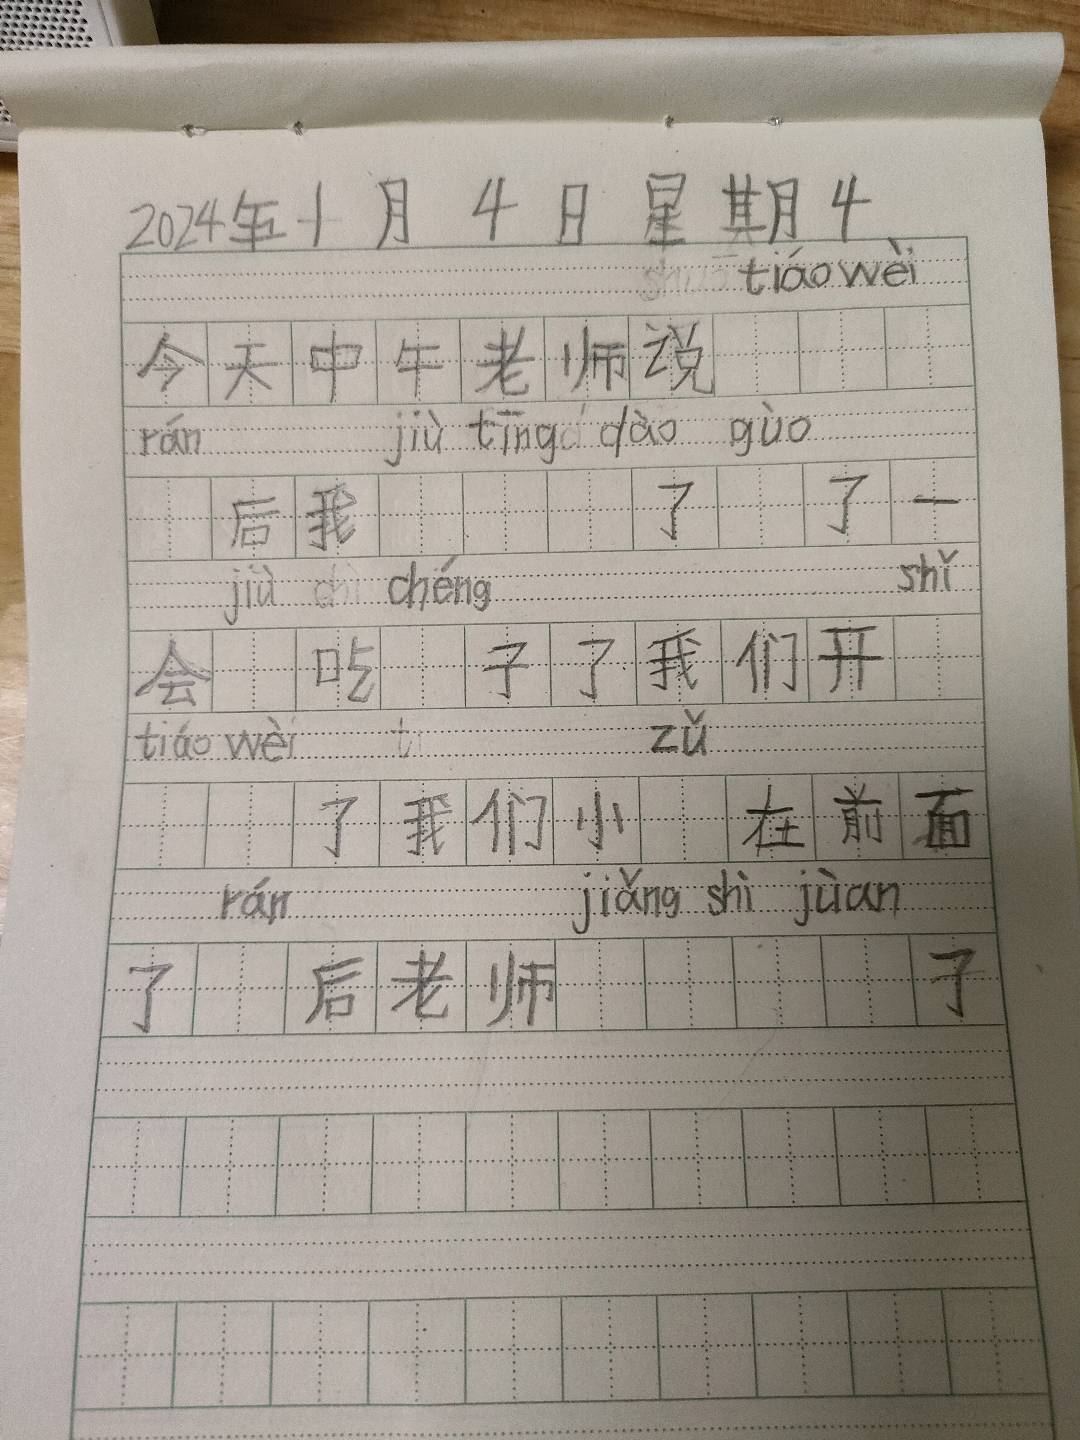 2024年十月4日星期4
tiáo wèi
今天中午老师说
rán jiù tīng dào guò
后我了了一
jiù chéng shǐ
会吃子了我们开
tiáo wèi zǔ
了我们小在前面
rán jiǎng shì jùan
了后老师子